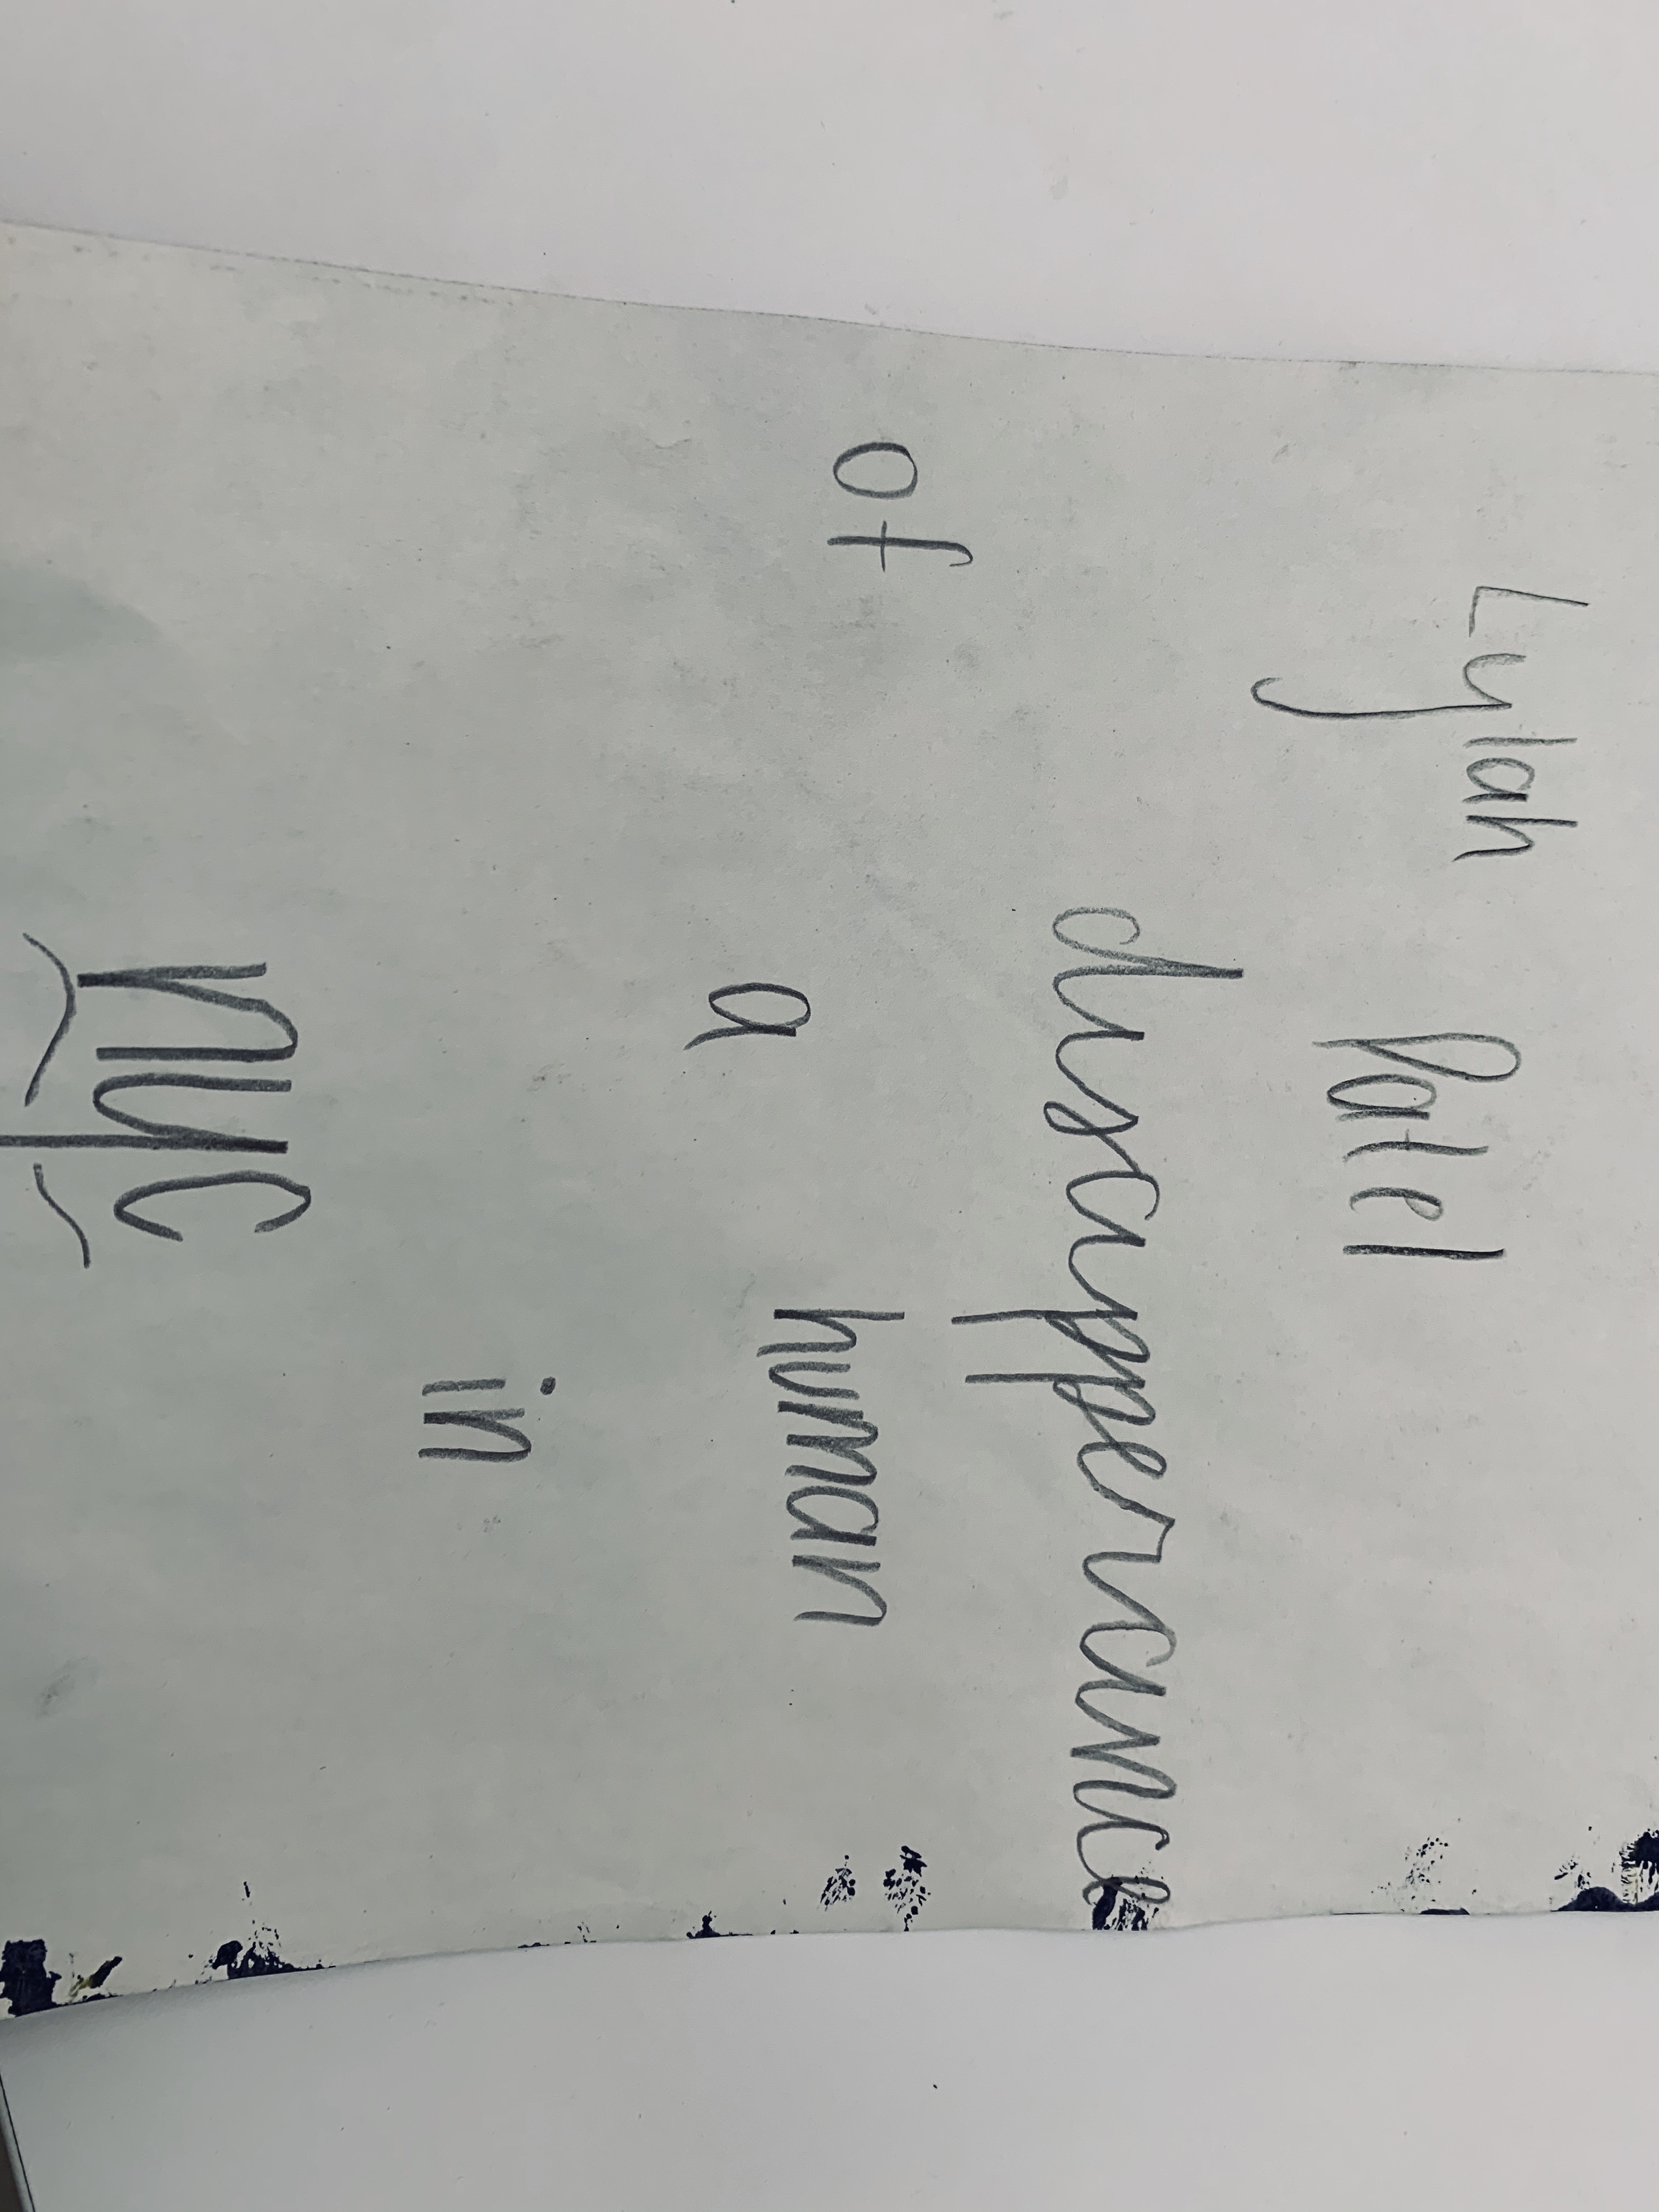 Lylah Patel
disapperance
of a human
in
nyc